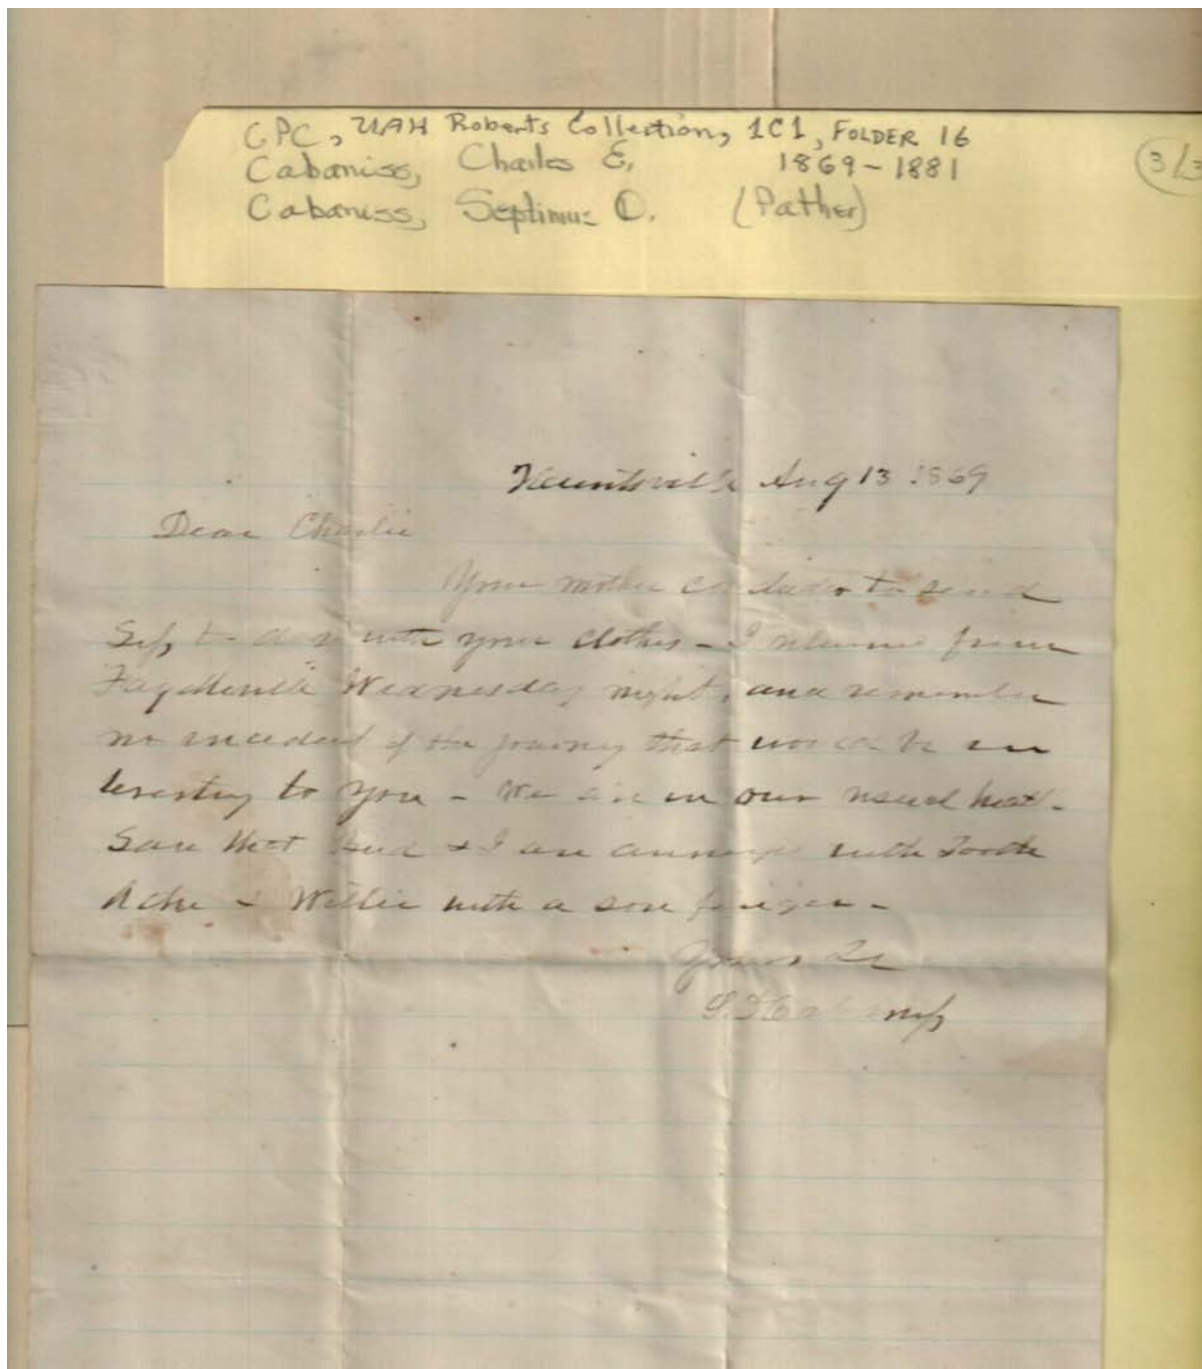 GPC, UAH Roberts Collection, 1C1, FOLDER 16
Cabaniss, Charles E. 1869-1881
Cabaniss, Septimus D. (Father)
3/3
Huntsville Aug 13 1869
Dear Charlie
Your mother concludes to send
Sep to day with your clothes - I returned from
Fayetteville Wednesday night, and remember
no incident of the journey that would be in
teresting to you - We are in our usual health
Save that Bud & I are annoyed with Tooth
Ache - & Willie with a sore finger -
Yours &c
S. D. Cabaniss